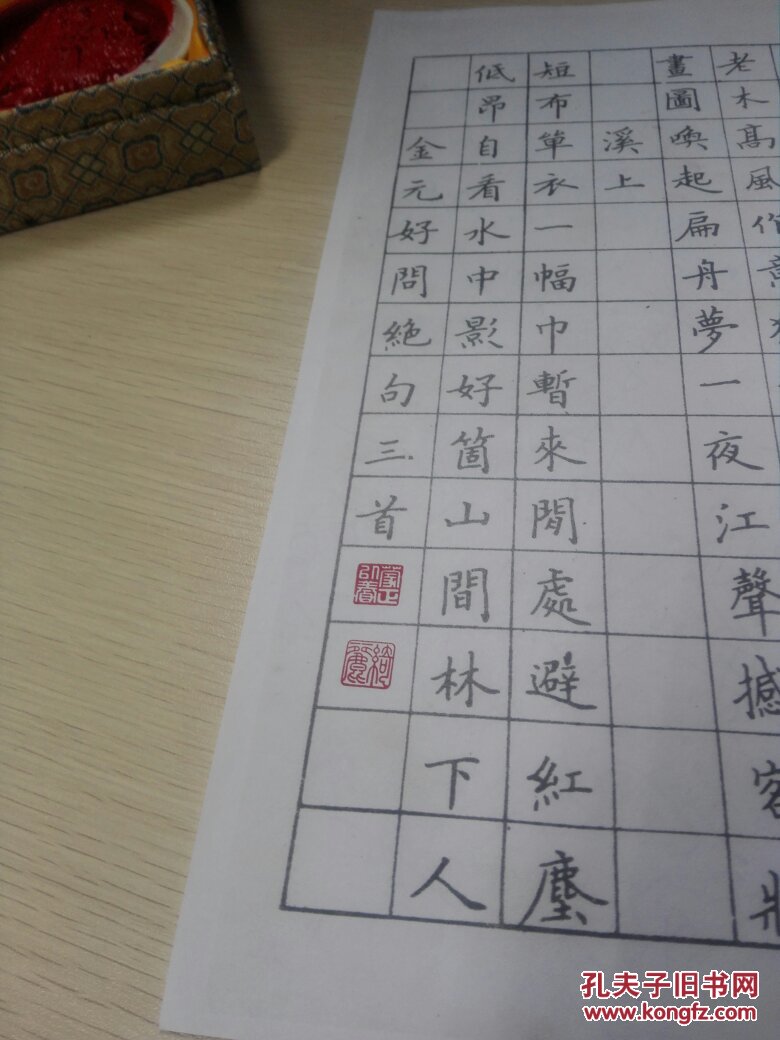 老木高風作意
畫圖喚起扁舟夢一夜江聲撼客
溪上
短布單衣一幅巾暫來閒處避紅塵
低昂自看水中影好箇山間林下人
金元好問絕句三首
孔夫子旧书网
www.kongfz.com